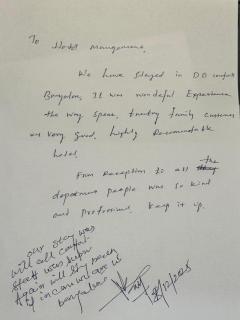 To
Hotel Management,
We have stayed in DD comforts
Bangalore, It was wonderful Experience
the way space, treating family customer
are very good, highly Recommendable
hotel.
From Reception to all the
department people was so kind
and Professional. Keep it up.
Our stay was
well
Staff was
Again will stay
if in
bangalore
28/12/2025